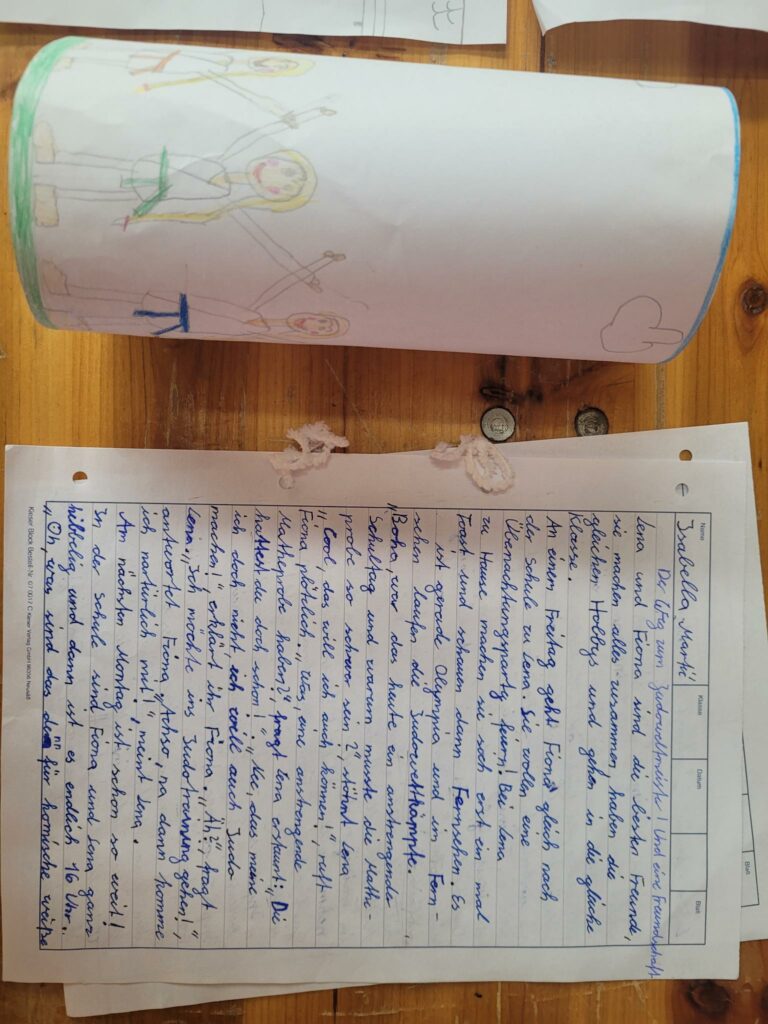 Name
Klasse
Datum
Blatt
Isabella Markč
Der Weg zum Judoweltmeister! Und eine Freundschaft
Lena und Fiona sind die besten Freunde,
sie machen alles zusammen haben die
gleichen Hobbys und gehen in die gleiche
Klasse.
An einem Freitag geht Fiona gleich nach
der Schule zu Lena. Sie wollen eine
Übernachtungsparty feiern! Bei Lena
zu Hause machen sie sich erst ein mal
Toast und schauen dann Fernsehen. Es
ist gerade Olympia und in Fern-
sehen laufen die Judowettkämpfe.
"Boha, war das heute ein anstrengender
Schultag und warum musste die Mathe-
probe so schwer sein?", stöhnt Lena
"Cool, das will ich auch können!", ruft
Fiona plötzlich. "Was, eine anstrengende
Matheprobe haben?", fragt Lena erstaunt: "Die
hattest du doch schon!" "Ne, das meine
ich doch nicht ich will auch Judo
machen!" erklärt ihr Fiona. "Äh?", fragt
Lena. "Ich möchte ins Judotraining gehen!",
antwortet Fiona "Achso, na dann komme
ich natürlich mit!", meint Lena.
Am nächsten Montag ist schon so weit!
In der Schule sind Fiona und Lena ganz
hibbelig und dann ist es endlich 16 Uhr.
"Oh, was sind das den für komische weiße
Blatt